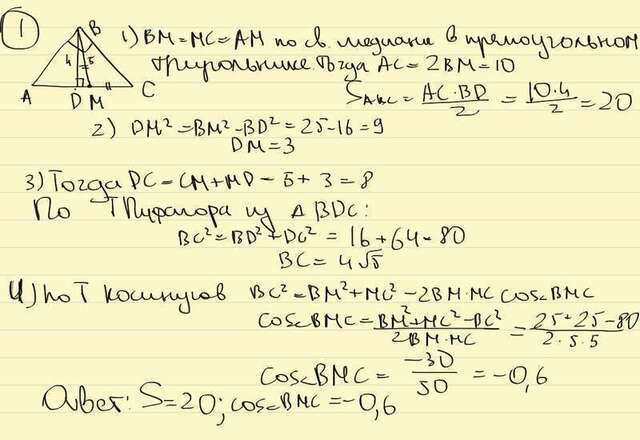 1
B
4
5
A
D M
C
1) BM = MC = AM по св. медиане в прямоугольном
треугольнике. Тогда AC = 2BM = 10
S_ABC = AC·BD/2 = 10·4/2 = 20
2) DM² = BM² - BD² = 25 - 16 = 9
DM = 3
3) Тогда DC = CM + MD = 5 + 3 = 8
По Т Пифагора из △BDC:
BC² = BD² + DC² = 16 + 64 = 80
BC = 4√5
4) по Т косинусов BC² = BM² + MC² - 2BM·MC cos∠BMC
cos∠BMC = BM² + MC² - BC²/2BM·MC = 25 + 25 - 80/2·5·5
cos∠BMC = -30/50 = -0,6
Ответ: S = 20; cos∠BMC = -0,6